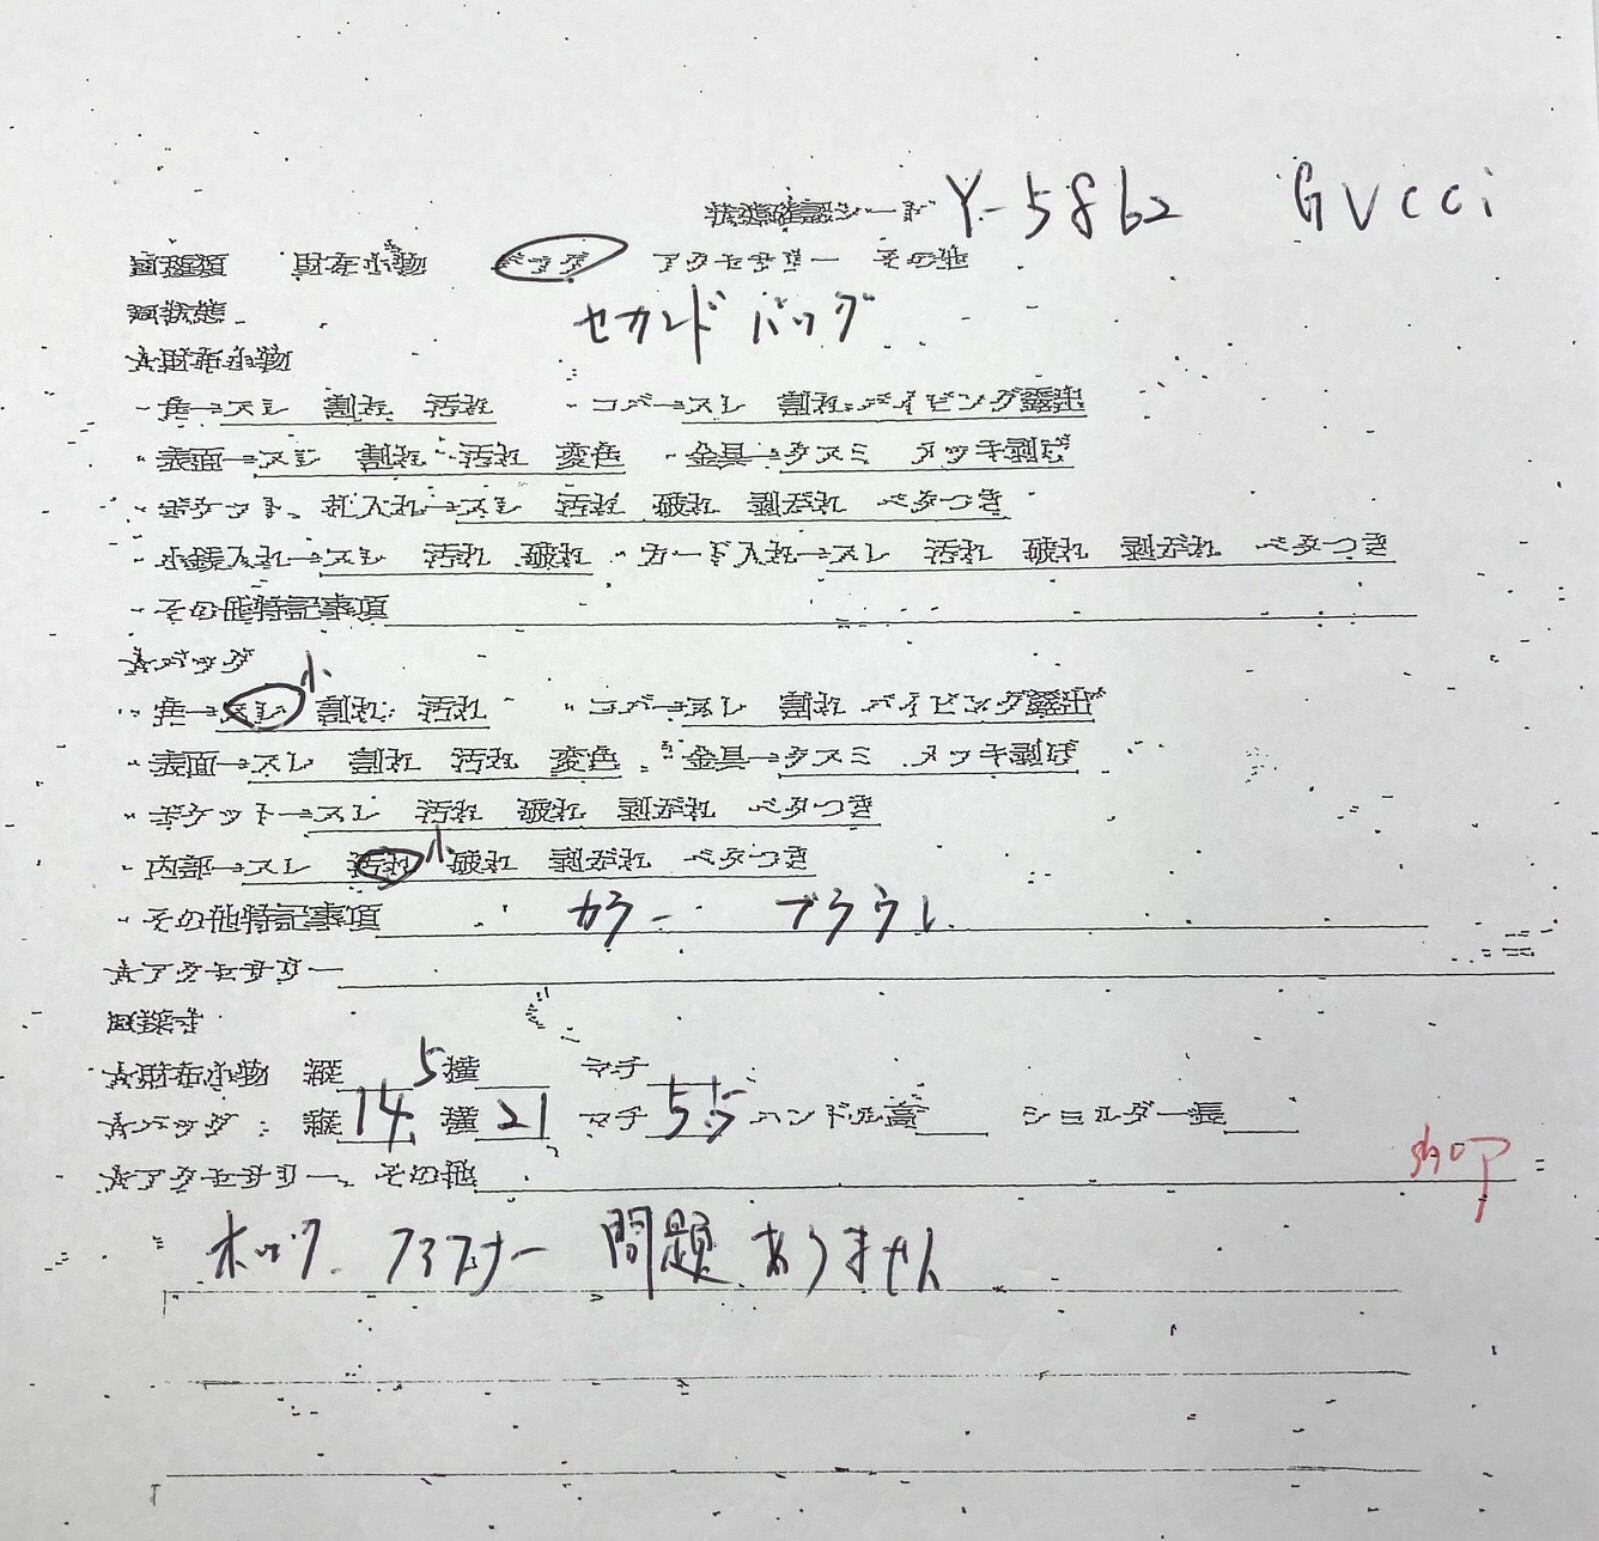 状態確認シート Y-5862 GUCCI
□種類 財布小物 バッグ アクセサリー その他
□状態 セカンドバッグ
☆財布小物
・角→スレ 割れ 汚れ ・コバ→スレ 割れ パイピング露出
・表面→スレ 割れ 汚れ 変色 ・金具→クスミ メッキ剥げ
・ポケット、札入れ→スレ 汚れ 破れ 剥がれ ベタつき
・小銭入れ→スレ 汚れ 破れ ・カード入れ→スレ 汚れ 破れ 剥がれ ベタつき
・その他特記事項
☆バッグ
・角→スレ 小 割れ 汚れ ・コバ→スレ 割れ パイピング露出
・表面→スレ 割れ 汚れ 変色 ・金具→クスミ メッキ剥げ
・ポケット→スレ 汚れ 破れ 剥がれ ベタつき
・内部→スレ 汚れ 小 破れ 剥がれ ベタつき
・その他特記事項 カラー ブラウン
☆アクセサリー
□採寸
☆財布小物 縦 横 マチ
☆バッグ 縦 14.5 横 21 マチ 5.5 ハンドル高 ショルダー長
☆アクセサリー、その他
ホック ファスナー 問題ありません